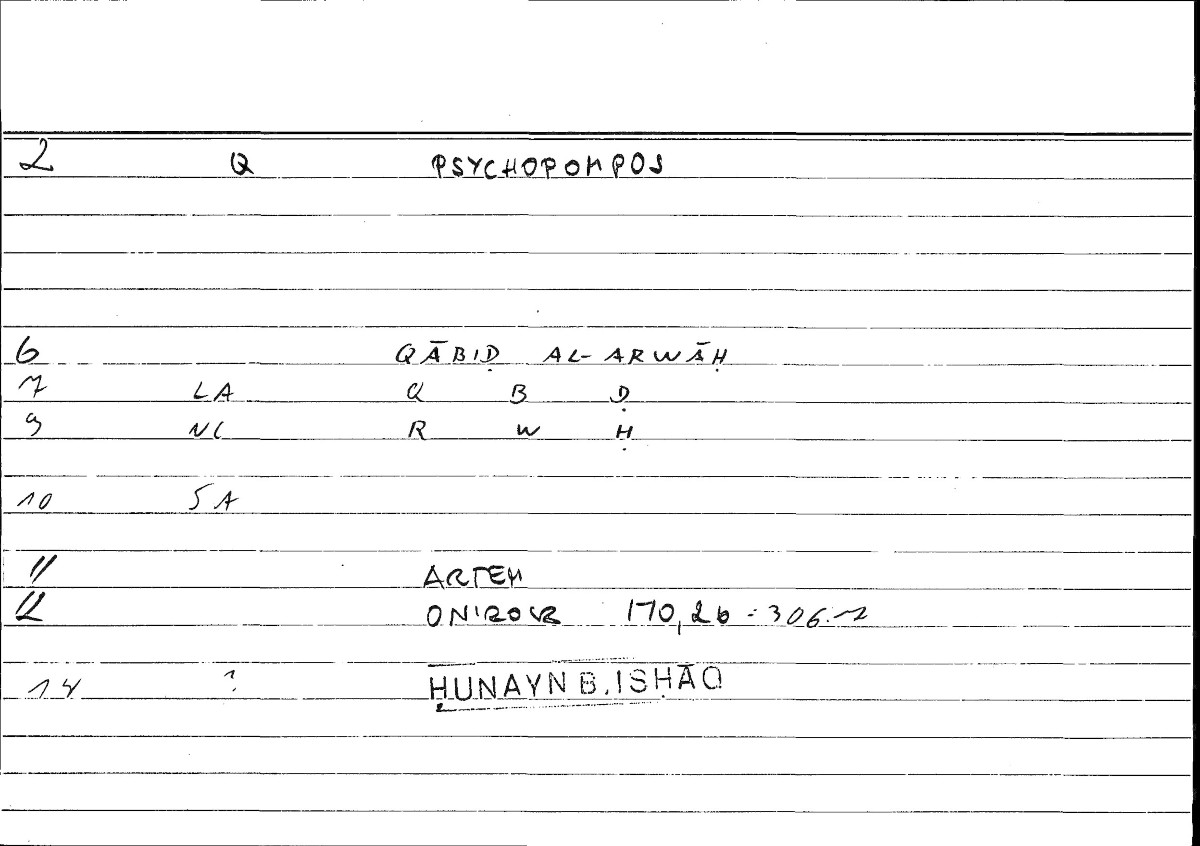 2 Q PSYCHOPOMPOS
6 QĀBIḌ AL-ARWĀḤ
7 LA Q B Ḍ
9 NC R W Ḥ
10 SA
11 ARTEM
12 ONIROCR 170,26 = 306.12
14 ? ḤUNAYN B. ISḤĀQ